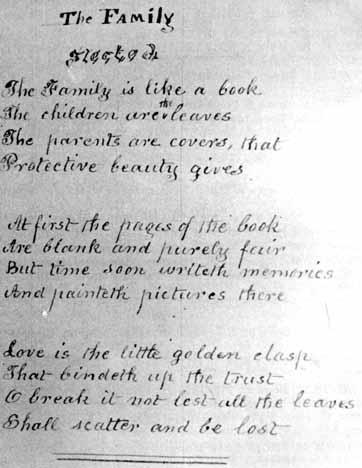 The Family
The Family is like a book
The children are the leaves
The parents are covers, that
Protective beauty gives
At first the pages of the book
Are blank and purely fair
But time soon writeth memories
And painteth pictures there
Love is the little golden clasp
That bindeth up the trust
O break it not lest all the leaves
Shall scatter and be lost